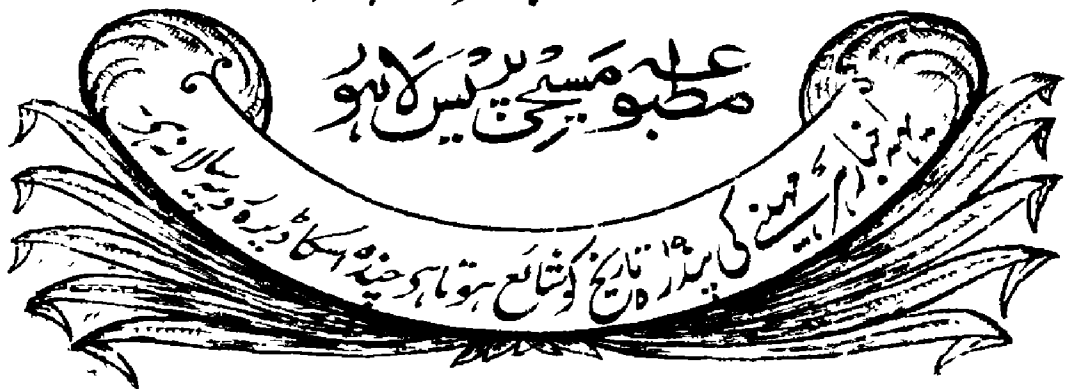 مطبوعہ مسیحی پریس لاہور
یہ اخبار ہر مہینے کی پندرہ تاریخ کو شائع ہوتا ہی چندہ اسکا ڈیڑہ روپیہ سالانہ ہی